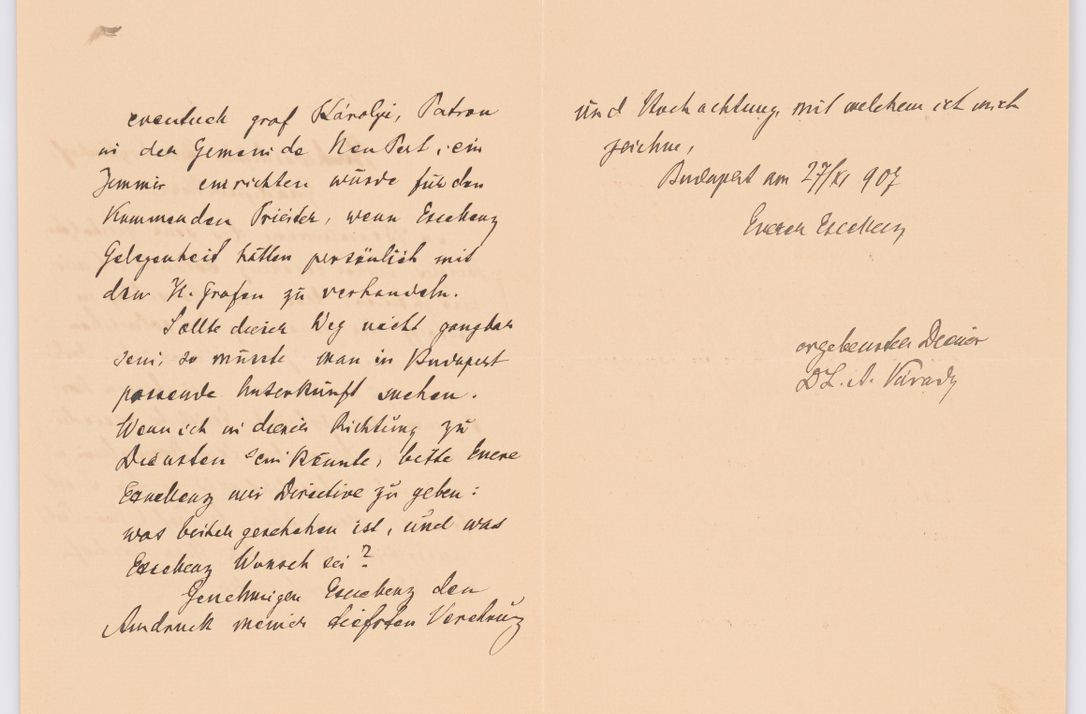 eventuell graf Károlyi, Patron
in der Gemeinde Neu Pest, ein
Zimmer einrichten würde für den
kommenden Priester, wenn Excellenz
Gelegenheit hätten persönlich mit
dem H. Grafen zu verhandeln.
Sollte dieser Weg nicht gangbar
sein, so müsste man in Budapest
passende Unterkunft suchen.
Wenn ich in dieser Richtung zu
Diensten sein könnte, bitte Euere
Excellenz mir Directive zu geben:
was bisher geschehen ist, und was
Excellenz Wunsch sei?
Genehmigen Excellenz den
Ausdruck meiner tiefsten Verehrung
und Hochachtung, mit welchem ich mich
zeichne,
Budapest am 27/XI 907
Euerer Excellenz
ergebenster Diener
DL. A. Várady